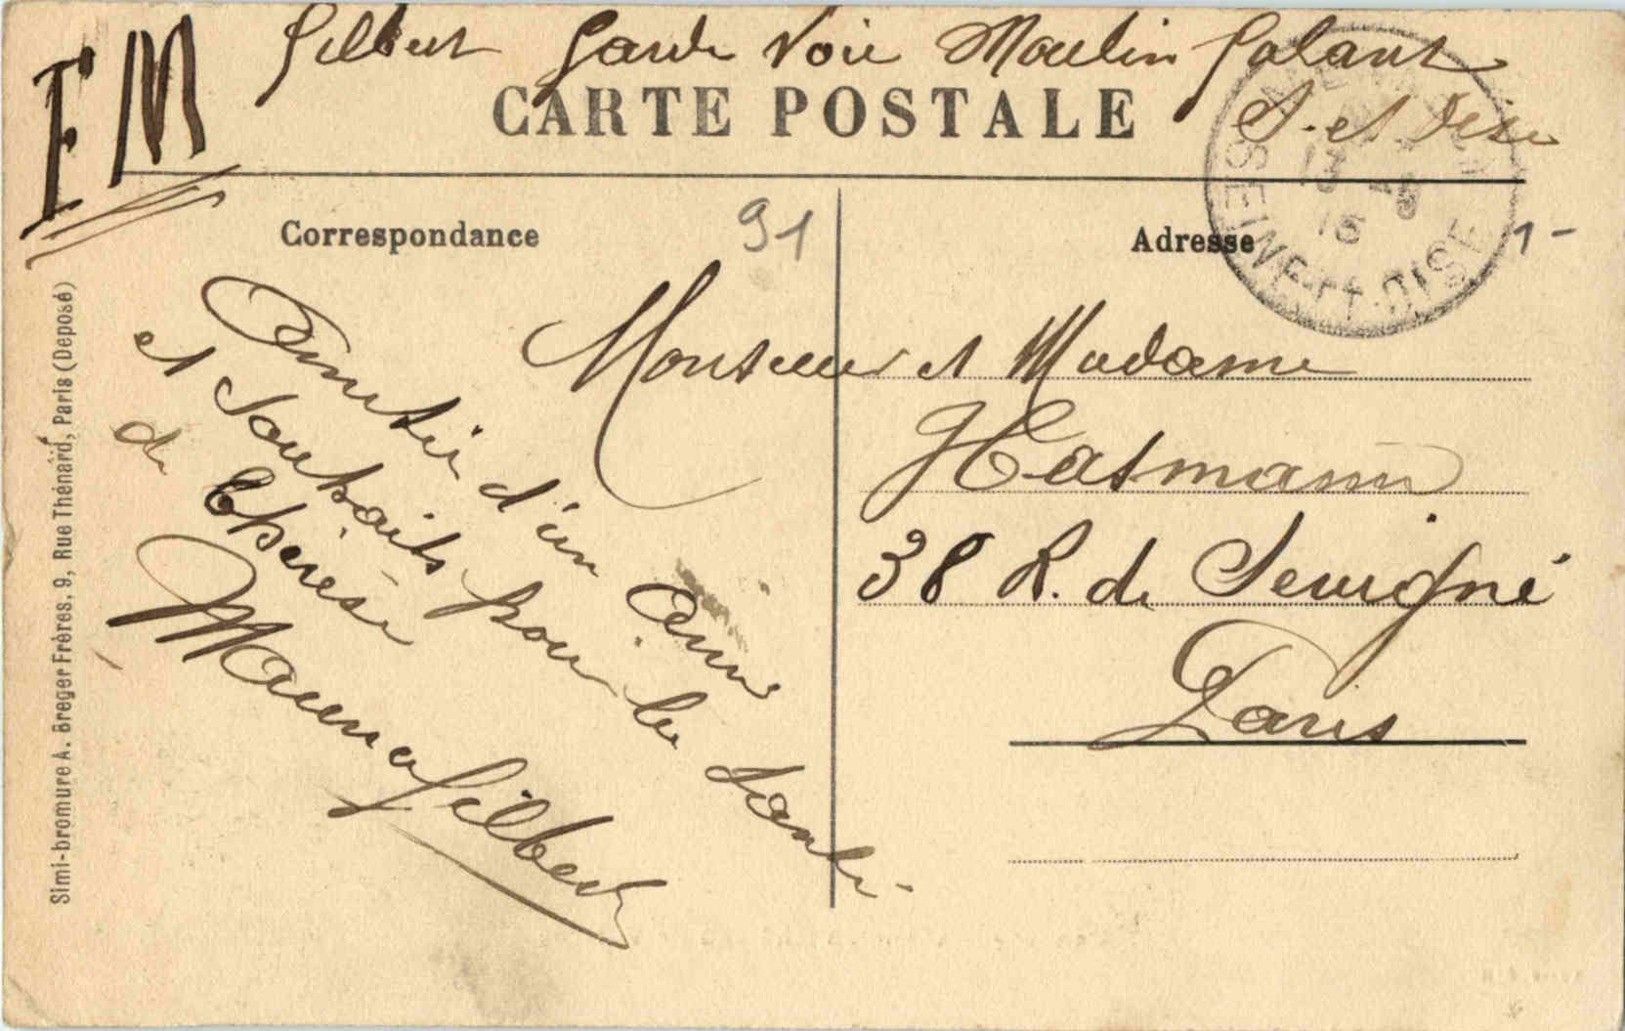 FM
Gilbert Garde Voie Moulin Galant
S. et Oise
CARTE POSTALE
13 -8
15
SEINE-ET-OISE
Correspondance
91
Adresse
1-
Amitié d'un Ami
et Souhaits pour la Santé
de Thérèse
Maurice Gilbert
Monsieur et Madame
Hatmann
38 R. de Sevigné
Paris
Simi-bromure A. Breger Frères, 9, Rue Thénard, Paris (Déposé)